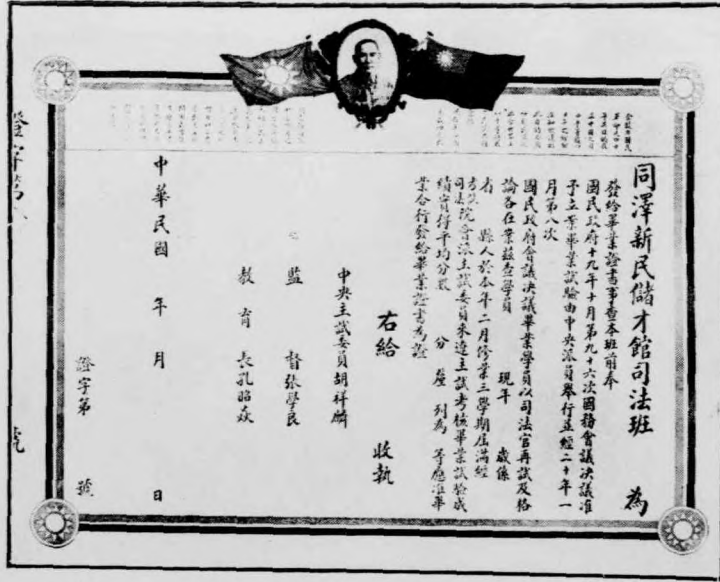 同澤新民儲才館司法班 為
發給畢業證書事查本班前奉
國民政府十九年十月第九十六次國務會議決議准
予立案畢業試驗由中央派員舉行並經二十年一
月第八次
國民政府會議決議畢業學員以司法官再試及格
論各在案茲查學員 現年 歲係
省 縣人於本年二月修業三學期屆滿經
考試
司法院會派主試委員來遼主試考核畢業試驗成
績實得平均分數 分 釐 列為 等應准畢
業合行發給畢業證書為證
右給 收執
中央主試委員胡祥麟
監 督張學良
教 育 長孔昭焱
中華民國 年 月 日
證字第 號
證字第 號